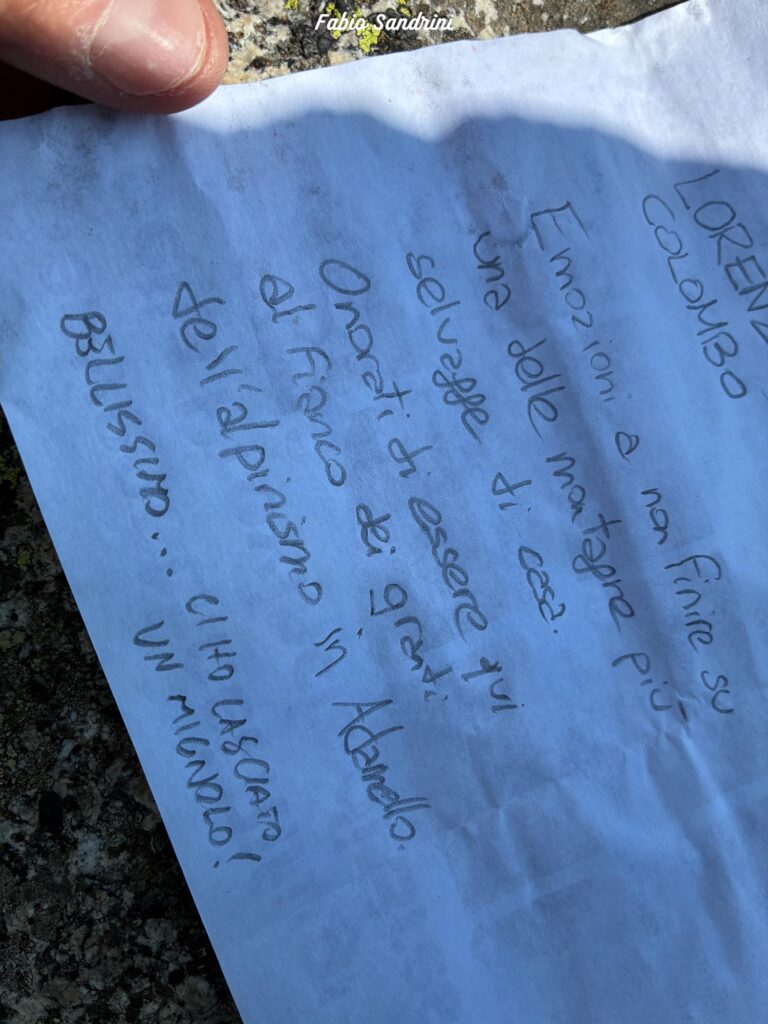 Fabio Sandrini
COLOMBO
Emozioni a non finire su
una delle montagne più
selvagge di casa.
Onorati di essere qui
al fianco dei grandi
dell'alpinismo in Adamello.
BELLISSIMO... CI HO LASCIATO
UN MIGNOLO!